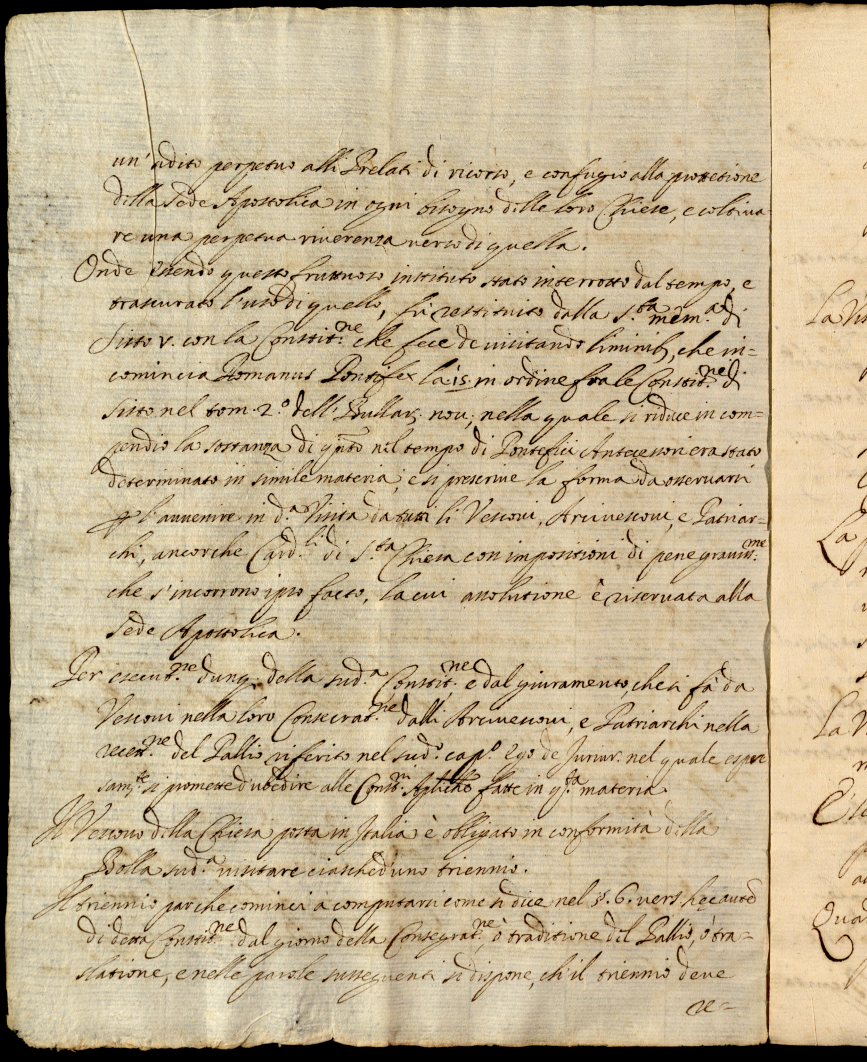 un' adito perpetuo alli Prelati di ricorso, e confugio alla protetione
della Sede Apostolica in ogni bisogno delle loro Chiese, e coltiva-
re una perpetua riverenza verso di quella.
Onde essendo questo fruttuoso instituto stato interrotto dal tempo, e
trascurato l'uso di quello, fù restituito dalla S.ta mem.a di
Sisto V. con la Constit.ne che fece de visitandis liminib, che in=
comincia Romanus Pontifex la 15. in ordine fra le Constit.ne di
Sisto nel tom. 2.o dell' Bullar. nou, nella quale si riduce in com=
pendio la sostanza di q.nto nel tempo di Pontefici Antecessori era stato
determinato in simile materia, e si prescrive la forma da osservarsi
p l'avvenire in d.a Visita da tutti li Vescovi, Arcivescovi, e Patriar=
chi, ancorche Card.li di S.ta Chiesa con impositioni di pene graviss.me
che s'incorrono ipso facto, la cui assolutione è riservata alla
Sede Apostolica.
Per esecut.ne dunq. della sud.a Constit.ne e dal giuramento, che si fà da
Vescovi nella loro Consecrat.ne dalli Arcivescovi, e Patriarchi nella
recett.ne del Pallio riferito nel sud.o cap.o Ego de Jurjur. nel quale espres
sam.te si promette d'ubedire alle Const.ni Apliche fatte in q.sta materia
Il Vescovo della Chiesa posta in Italia è obligato in conformità della
Bolla sud.a visitare ciascheduno triennio.
Il triennio par che cominci a computarsi come si dice nel §. 6. vers. hęc autē
di detta Constit.ne dal giorno della Consegrat.ne, ò traditione del Pallio, ò tra=
slatione, e nelle parole susseguenti si dispone, ch'il triennio deve
re=
La
La
La
Qua